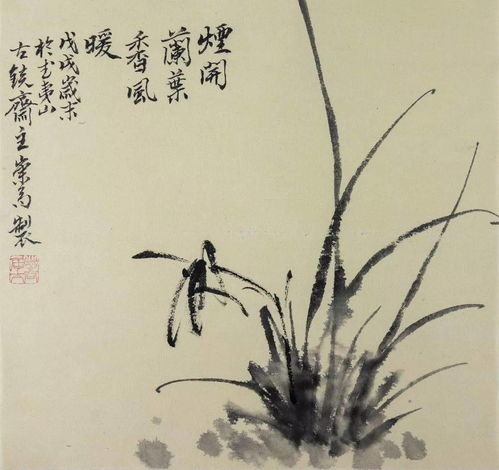 煙開
蘭葉
香風
暖
戊戌歲末
於武夷山
古鏡齋主崇製